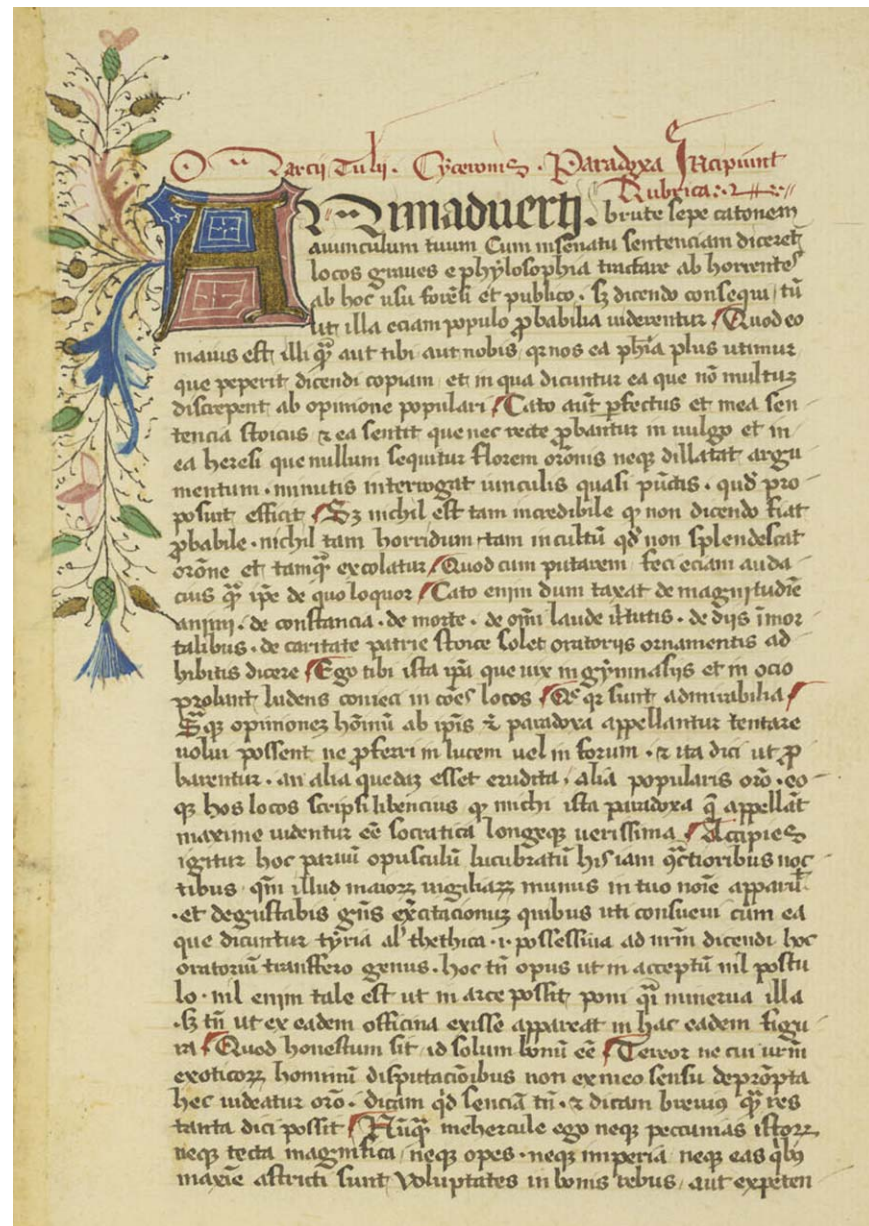 Marcii Tulii · Cyceronis · Paradoxa Incipiunt
Rubrica
Animaduerti · brute sepe catonem
auunculum tuum Cum in senatu sentenciam diceret
locos graues e phylosophia tractare ab horrentes
ab hoc usu forensi et publico · sʒ dicendo consequi tū
ut illa eciam populo ꝓbabilia uiderentur Quod eo
maius est illi qꝫ aut tibi aut nobis qꝛ nos ea phīa plus utimur
que peperit dicendi copiam et in qua dicuntur ea que nō multuʒ
discrepent ab opinione populari Cato aūt ꝑfectus et mea sen
tencia stoicus ⁊ ea sentit que nec recte ꝓbantur in uulgo et in
ea heresi que nullum sequitur florem orōnis neqꝫ dillatat argu
mentum · minutis interrogat uinculis quasi pūctis · quð pro
posuit efficit Sʒ nichil est tam incredibile qꝫ non dicendo fiat
ꝓbabile · nichil tam horridum tam incultū qð non splendescat
orōne et tamqꝫ excolatur Quod cum putarem feci eciam auda
cius qꝫ ipē de quo loquor Cato enim dum taxat de magnitudīe
animi · de constancia · de morte · de omī laude uirtutis · de diis īmor
talibus · de caritate patrie stoice solet oratoriis ornamentis ad
hibitis dicere Ego tibi ista ipā que uix in gymnasiis et in ocio
probant ludens conieci in cōes locos Que qꝛ sunt admirabilia
opinionez hōinū ab ipīs ⁊ paradoxa appellantur tentare
uolui possent ne ꝓferri in lucem uel in forum · ⁊ ita dici ut ꝓ
barentur · an alia quedaʒ esset erudita · alia popularis orō · eo
qꝫ hos locos scripsi libencius qꝫ michi ista paradoxa q̄ appellāt
maxime uidentur eē socratica longeqꝫ uerissima Accipies
igitur hoc paruū opusculū lucubratū his iam ꝯctioribus noc
tibus qm̄ illud maioꝝ uigiliaꝝ munus in tuo noīe apparuit
· et degustabis gn̄s exc̄itacionuʒ quibus uti consueui cum ea
que dicuntur tyria al' thethica · possessiua ad nr̄m dicendi hoc
oratoriū transfero genus · hoc tn̄ opus ut in acceptū nil postu
lo · nil enim tale est ut in arce possit poni qī minerua illa
· sʒ tn̄ ut ex eadem officina exisse appareat in hac eadem figu
ra Quod honestum sit id solum bonū eē Tereor ne cui ur̄m
exoticoꝝ hominū disputaciōibus non ex meo sensu deprōpta
hec uideatur orō · dicam qð senciā tn̄ · ⁊ dicam breuius qꝫ res
tanta dici possit Nūqꝫ mehercule ego neqꝫ peccunias istoꝝ
neqꝫ tecta magnifica neqꝫ opes · neqꝫ imperia neqꝫ eas qībꝫ
maxīe astricti sunt voluptates in bonis rebus aut expeten